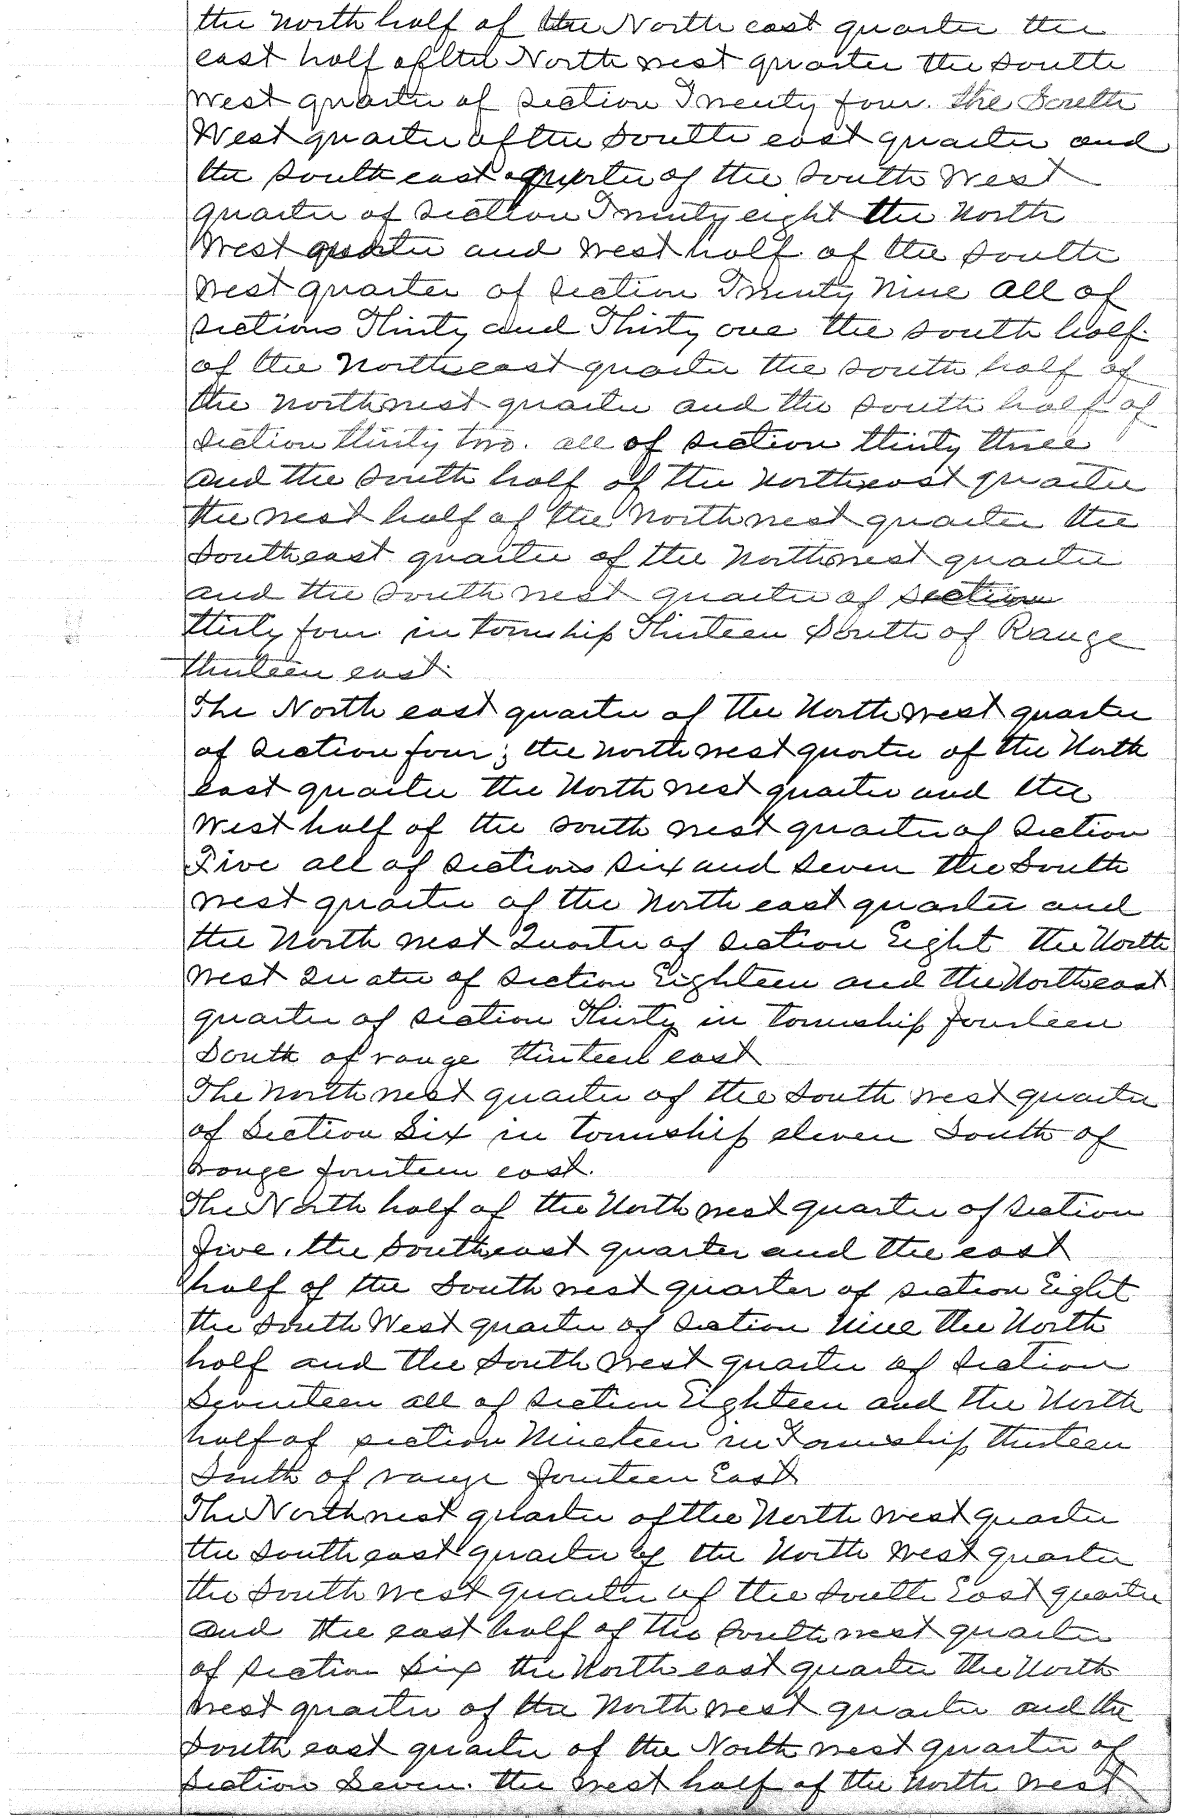 the North half of the North east quarter the
east half of the North west quarter the South
West quarter of Section Twenty four. the South
West quarter of the South east quarter and
the South east quarter of the South West
quarter of Section Twenty eight the North
West quarter and West half of the South
West quarter of Section Twenty Nine all of
Sections Thirty and Thirty one the South half
of the Northeast quarter the South half of
the Northwest quarter and the South half of
Section thirty two. all of Section thirty three
and the South half of the Northeast quarter
the West half of the Northwest quarter the
Southeast quarter of the Northwest quarter
and the Southwest quarter of Section
thirty four in township Thirteen South of Range
thirteen east.
The North east quarter of the Northwest quarter
of Section four; the northwest quarter of the North
east quarter the North west quarter and the
West half of the South west quarter of Section
Five all of Sections Six and Seven the South
west quarter of the North east quarter and
the North west Quarter of Section Eight the North
West Quater of Section Eighteen and the Northeast
quarter of Section Thirty in township fourteen
South of range thirteen east
The Northwest quarter of the South west quarter
of Section Six in township eleven South of
range fourteen east.
The North half of the North west quarter of Section
five. the Southeast quarter and the east
half of the South west quarter of Section Eight
the South West quarter of Section Nine the North
half and the South West quarter of Section
Seventeen all of Section Eighteen and the North
half of Section Nineteen in Township thirteen
South of range fourteen East
The Northwest quarter of the North west quarter
the South east quarter of the North West quarter
the South West quarter of the South East quarter
and the east half of the Southwest quarter
of Section Six the North east quarter the North
West quarter of the Northwest quarter and the
South east quarter of the North west quarter of
Section Seven. the West half of the North West